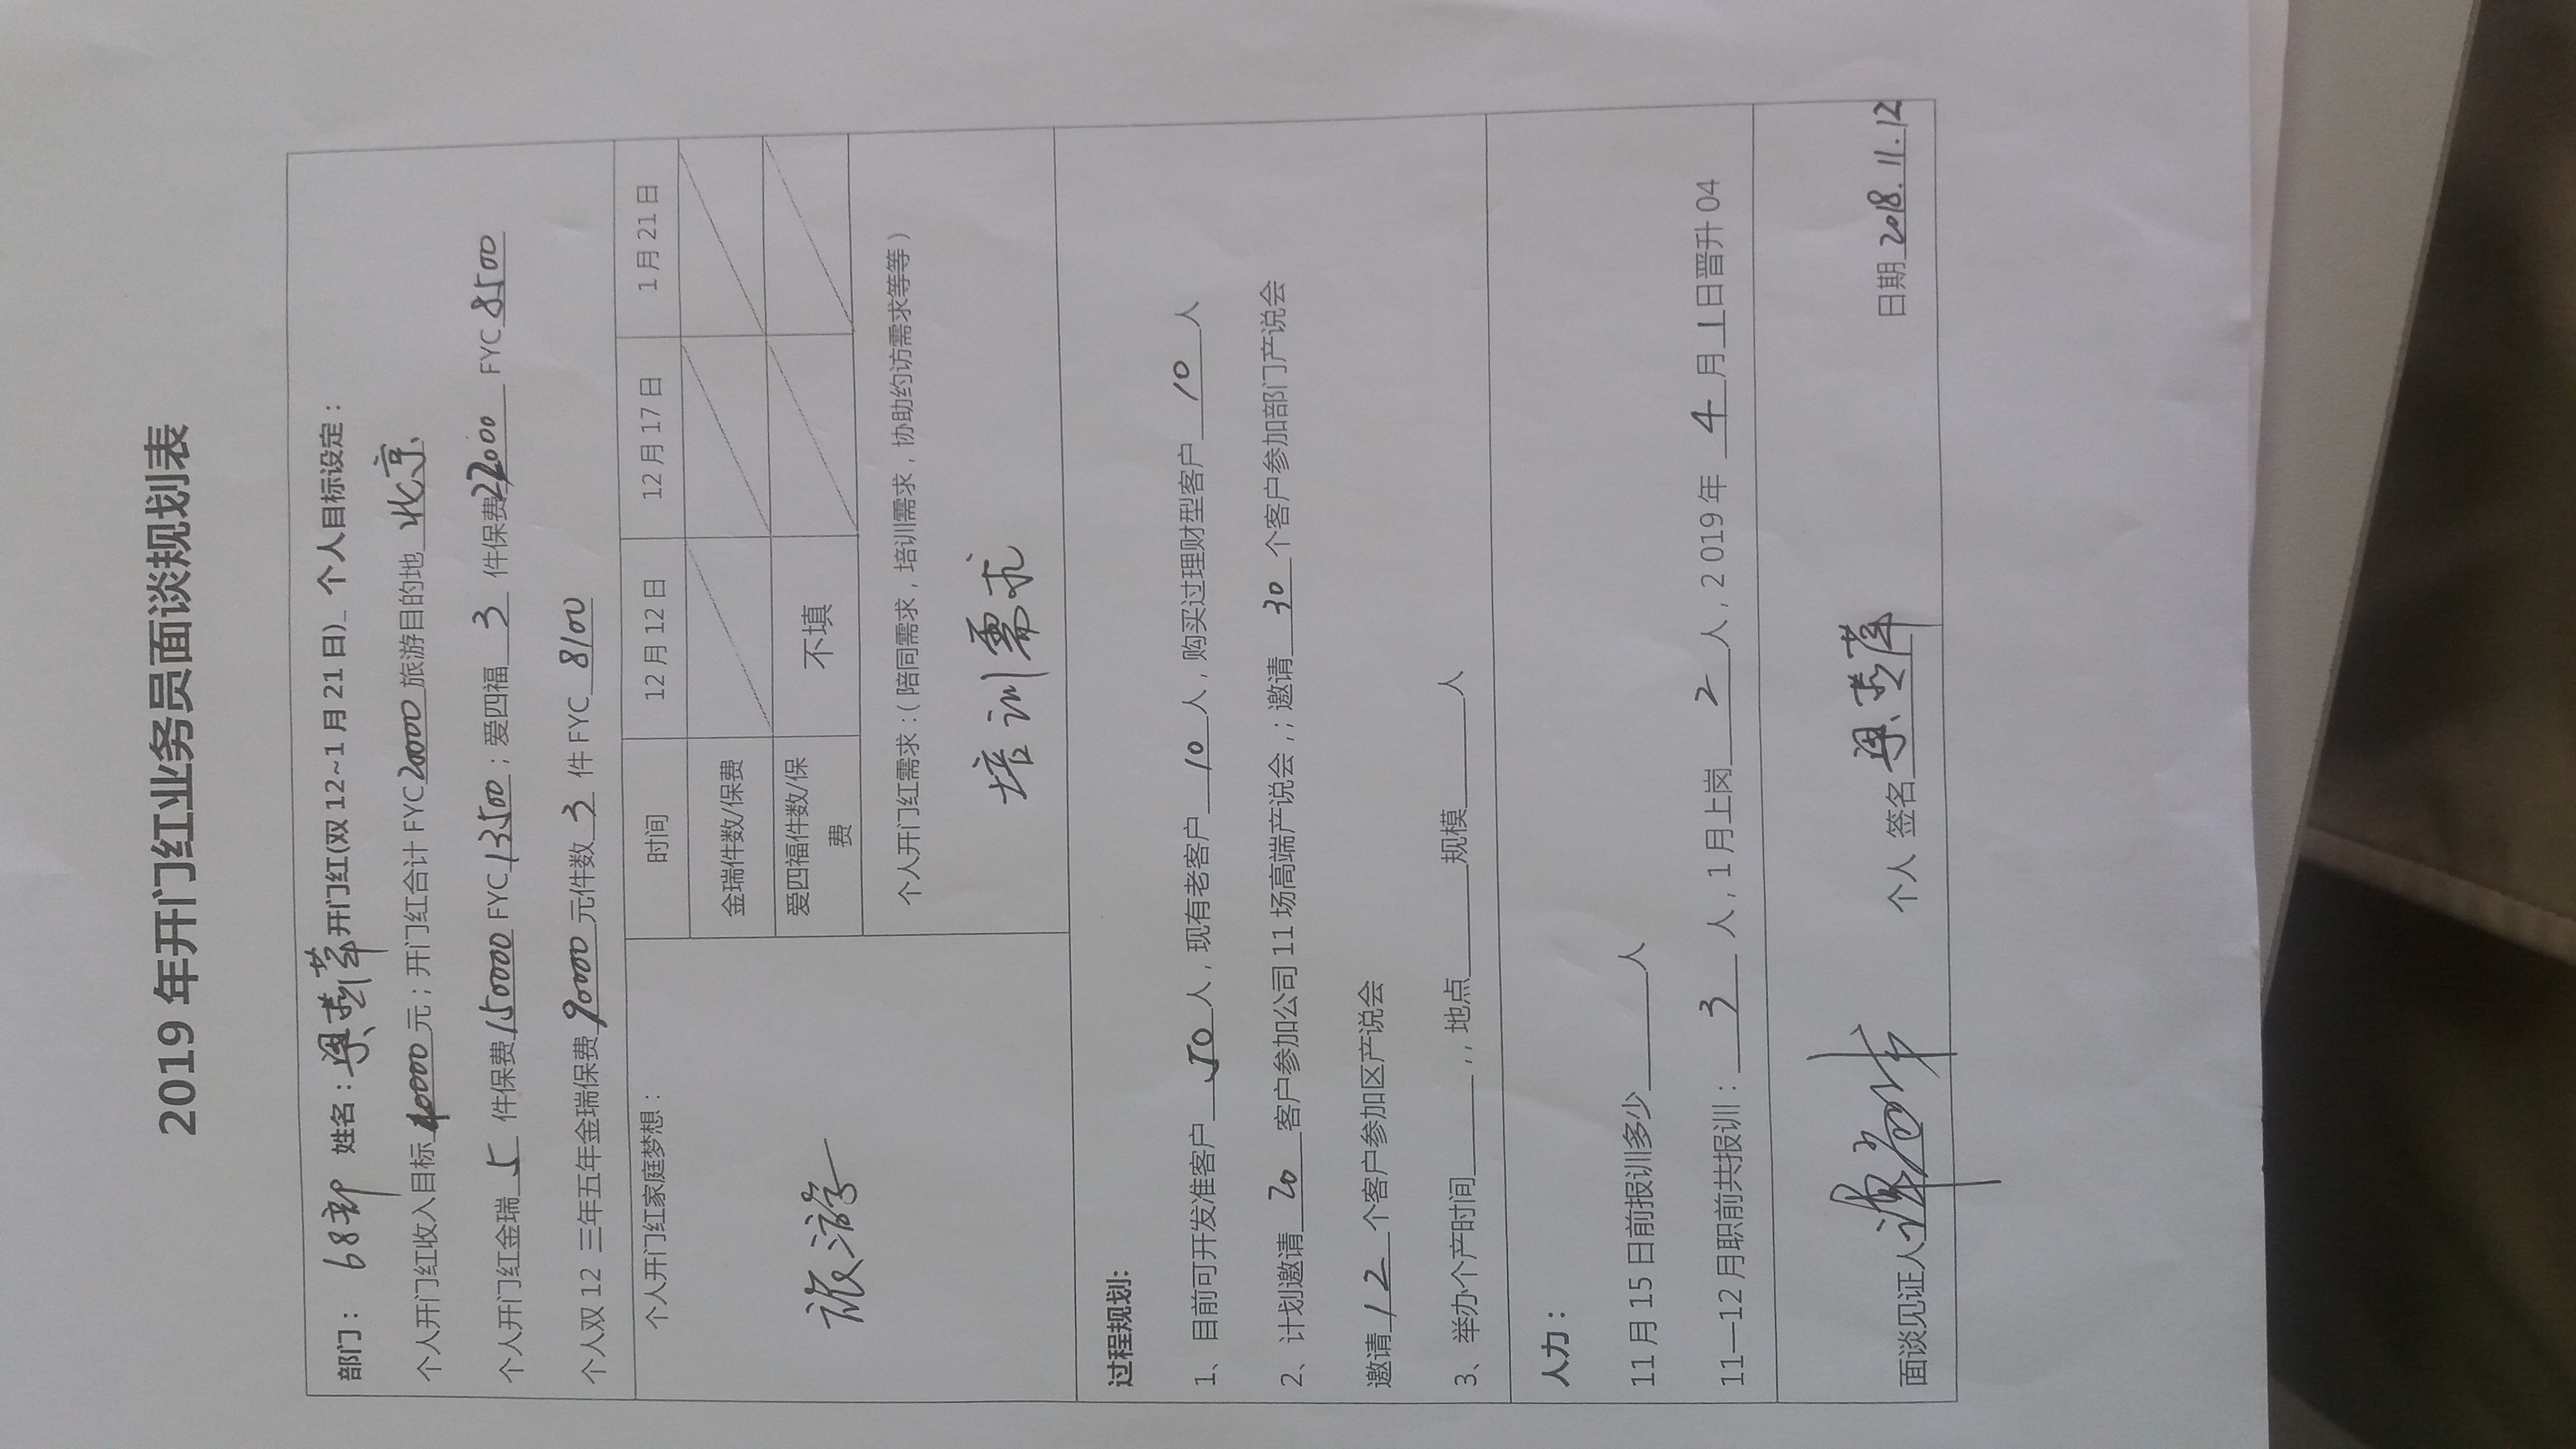 2019 年开门红业务员面谈规划表
部门： 68部 姓名： 开门红(双 12~1 月 21 日)_ 个人目标设定：
个人开门红收入目标 40000 元；开门红合计 FYC 20000 旅游目的地 北京
个人开门红金瑞 5 件保费 150000 FYC 13500；爱四福 3 件保费 22000 FYC 8500
个人双 12 三年五年金瑞保费 90000 元件数 3 件 FYC 8100
个人开门红家庭梦想：
旅游
时间 12 月 12 日 12 月 17 日 1 月 21 日
金瑞件数/保费
爱四福件数/保费 不填
个人开门红需求：（陪同需求，培训需求，协助约访需求等等）
培训需求
过程规划:
1、目前可开发准客户 50 人，现有老客户 10 人，购买过理财型客户 10 人
2、计划邀请 20 客户参加公司 11 场高端产说会，；邀请 30 个客户参加部门产说会
邀请 12 个客户参加区产说会
3、举办个产时间______，，地点______规模______人
人力：
11 月 15 日前报训多少______人
11—12 月职前共报训： 3 人，1 月上岗 2 人，2019 年 4 月 1 日晋升 04
面谈见证人 个人 签名 日期 2018.11.12